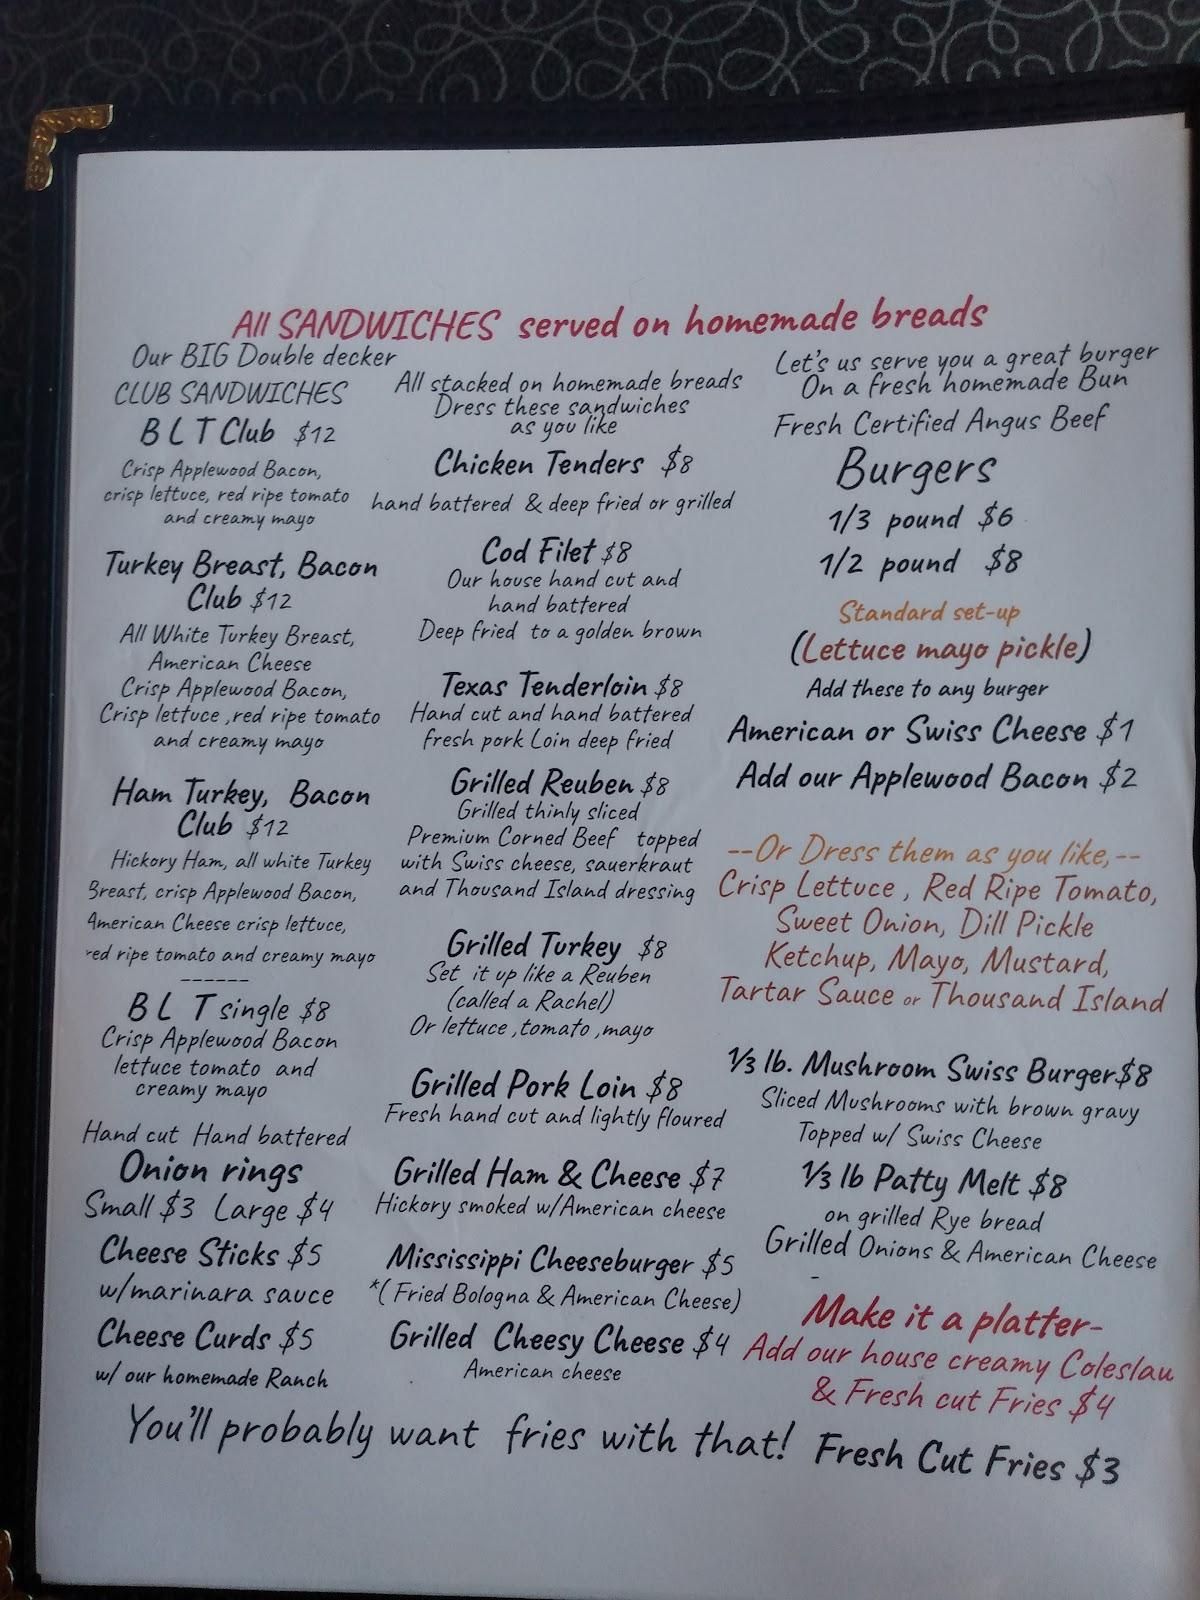 All SANDWICHES served on homemade breads
Our BIG Double decker
CLUB SANDWICHES
B L T Club $12
Crisp Applewood Bacon,
crisp lettuce, red ripe tomato
and creamy mayo
Turkey Breast, Bacon
Club $12
All White Turkey Breast,
American Cheese
Crisp Applewood Bacon,
Crisp lettuce ,red ripe tomato
and creamy mayo
Ham Turkey, Bacon
Club $12
Hickory Ham, all white Turkey
Breast, crisp Applewood Bacon,
American Cheese crisp lettuce,
red ripe tomato and creamy mayo
------
B L T single $8
Crisp Applewood Bacon
lettuce tomato and
creamy mayo
Hand cut Hand battered
Onion rings
Small $3 Large $4
Cheese Sticks $5
w/marinara sauce
Cheese Curds $5
w/ our homemade Ranch
All stacked on homemade breads
Dress these sandwiches
as you like
Chicken Tenders $8
hand battered & deep fried or grilled
Cod Filet $8
Our house hand cut and
hand battered
Deep fried to a golden brown
Texas Tenderloin $8
Hand cut and hand battered
fresh pork Loin deep fried
Grilled Reuben $8
Grilled thinly sliced
Premium Corned Beef topped
with Swiss cheese, sauerkraut
and Thousand Island dressing
Grilled Turkey $8
Set it up like a Reuben
(called a Rachel)
Or lettuce ,tomato ,mayo
Grilled Pork Loin $8
Fresh hand cut and lightly floured
Grilled Ham & Cheese $7
Hickory smoked w/American cheese
Mississippi Cheeseburger $5
*( Fried Bologna & American Cheese)
Grilled Cheesy Cheese $4
American cheese
Let's us serve you a great burger
On a fresh homemade Bun
Fresh Certified Angus Beef
Burgers
1/3 pound $6
1/2 pound $8
Standard set-up
(Lettuce mayo pickle)
Add these to any burger
American or Swiss Cheese $1
Add our Applewood Bacon $2
--Or Dress them as you like,--
Crisp Lettuce , Red Ripe Tomato,
Sweet Onion, Dill Pickle
Ketchup, Mayo, Mustard,
Tartar Sauce or Thousand Island
⅓ lb. Mushroom Swiss Burger$8
Sliced Mushrooms with brown gravy
Topped w/ Swiss Cheese
⅓ lb Patty Melt $8
on grilled Rye bread
Grilled Onions & American Cheese
-
Make it a platter-
Add our house creamy Coleslaw
& Fresh cut Fries $4
You'll probably want fries with that! Fresh Cut Fries $3